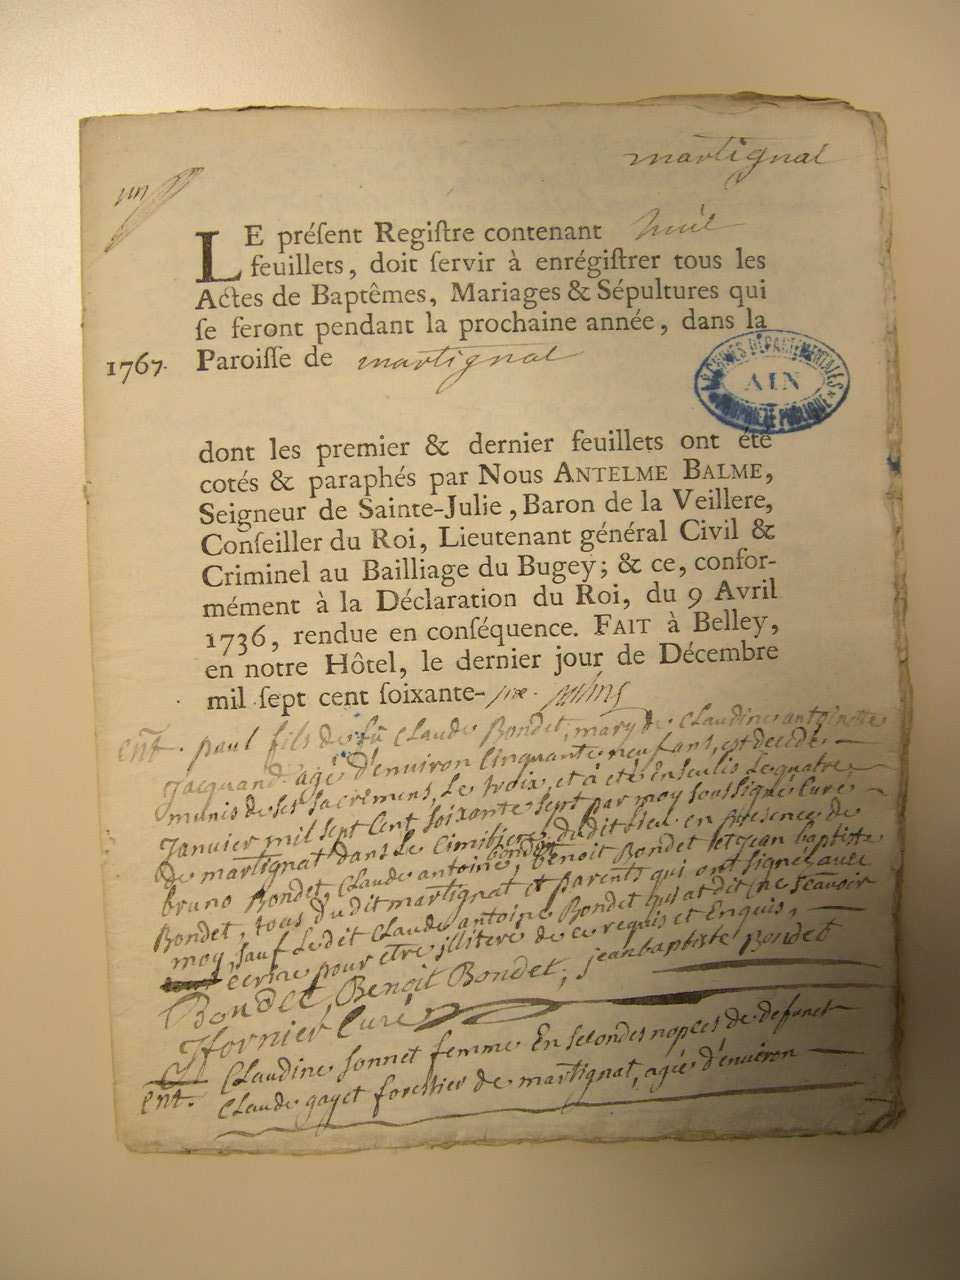 martignat
LE préſent Regiſtre contenant huit
feuillets, doit ſervir à enrégiſtrer tous les
Actes de Baptêmes, Mariages & Sépultures qui
ſe feront pendant la prochaine année, dans la
1767. Paroiſſe de martignat
ARCHIVES DÉPARTEMENTALES
AIN
PROPRIÉTÉ PUBLIQUE
dont les premier & dernier feuillets ont été
cotés & paraphés par Nous ANTELME BALME,
Seigneur de Sainte-Julie, Baron de la Veillere,
Conſeiller du Roi, Lieutenant général Civil &
Criminel au Bailliage du Bugey; & ce, confor-
mément à la Déclaration du Roi, du 9 Avril
1736, rendue en conſéquence. FAIT à Belley,
en notre Hôtel, le dernier jour de Décembre
mil ſept cent ſoixante-six.
ent. paul fils de fû Claude Bondet, mary de Claudine antoinette
Jacquand agé d'environ cinquante neuf ans, est decede
munis de ses sacremens, Le troix, et à eté Enseulis Le quatre
Janvier mil sept cent soixante sept par moy soussigné Cure
de martignat dans Le Cimitiere dudit Lieu en presence de
bruno Bondet, Claude antoine bondet, Benoit Bondet et Jean baptiste
Bondet, tous dudit martignat et parents qui ont signé avec
moy, sauf Ledit Claude antoine Bondet qui at dit ne sçavoir
ecrire pour être illiteré de ce requis et Enquis,
Bondet, Benoit Bondet, jean baptiste Bondet
Jfornier Curé
ent. Claudine sonnet femme En secondes nopces de defunct
Claude gayet forestier de martignat, agée d'environ